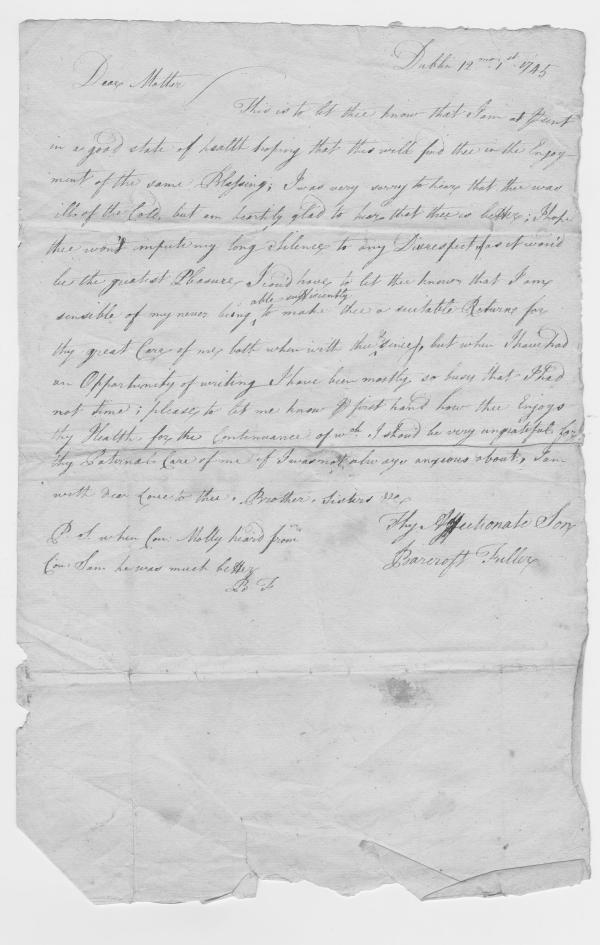 Dublin 12 mo. 1st. 1745
Dear Mother
This is to let thee know that I am at Psent
in a good state of health hoping that this will find thee in the Enjoy-
ment of the same Blessing; I was very sorry to hear that thee was
ill of the Cold, but am heartily glad to hear that thee is better; I hope
thee won't impute my long Silence to any Disrespect (as it wou'd
be the greatest Pleasure I cou'd have to let thee know that I am
able sufficiently
sensible of my never being to make thee a suitable Return for
thy great Care of me both when with thee & since), but when I have had
an Opportunity of writing I have been mostly so busy that I had
not time; please to let me know first hand how thee Enjoys
thy Health for the Continuance of wch. I shou'd be very ungrateful for
thy Paternal Care of me if I was not always anxious about, I am
with dear Love to thee, Brother, Sisters &ca
Thy Affectionate Son
Barcroft Fuller
P.S. when Cou. Molly heard from
Cou. Sam. he was much better
B F